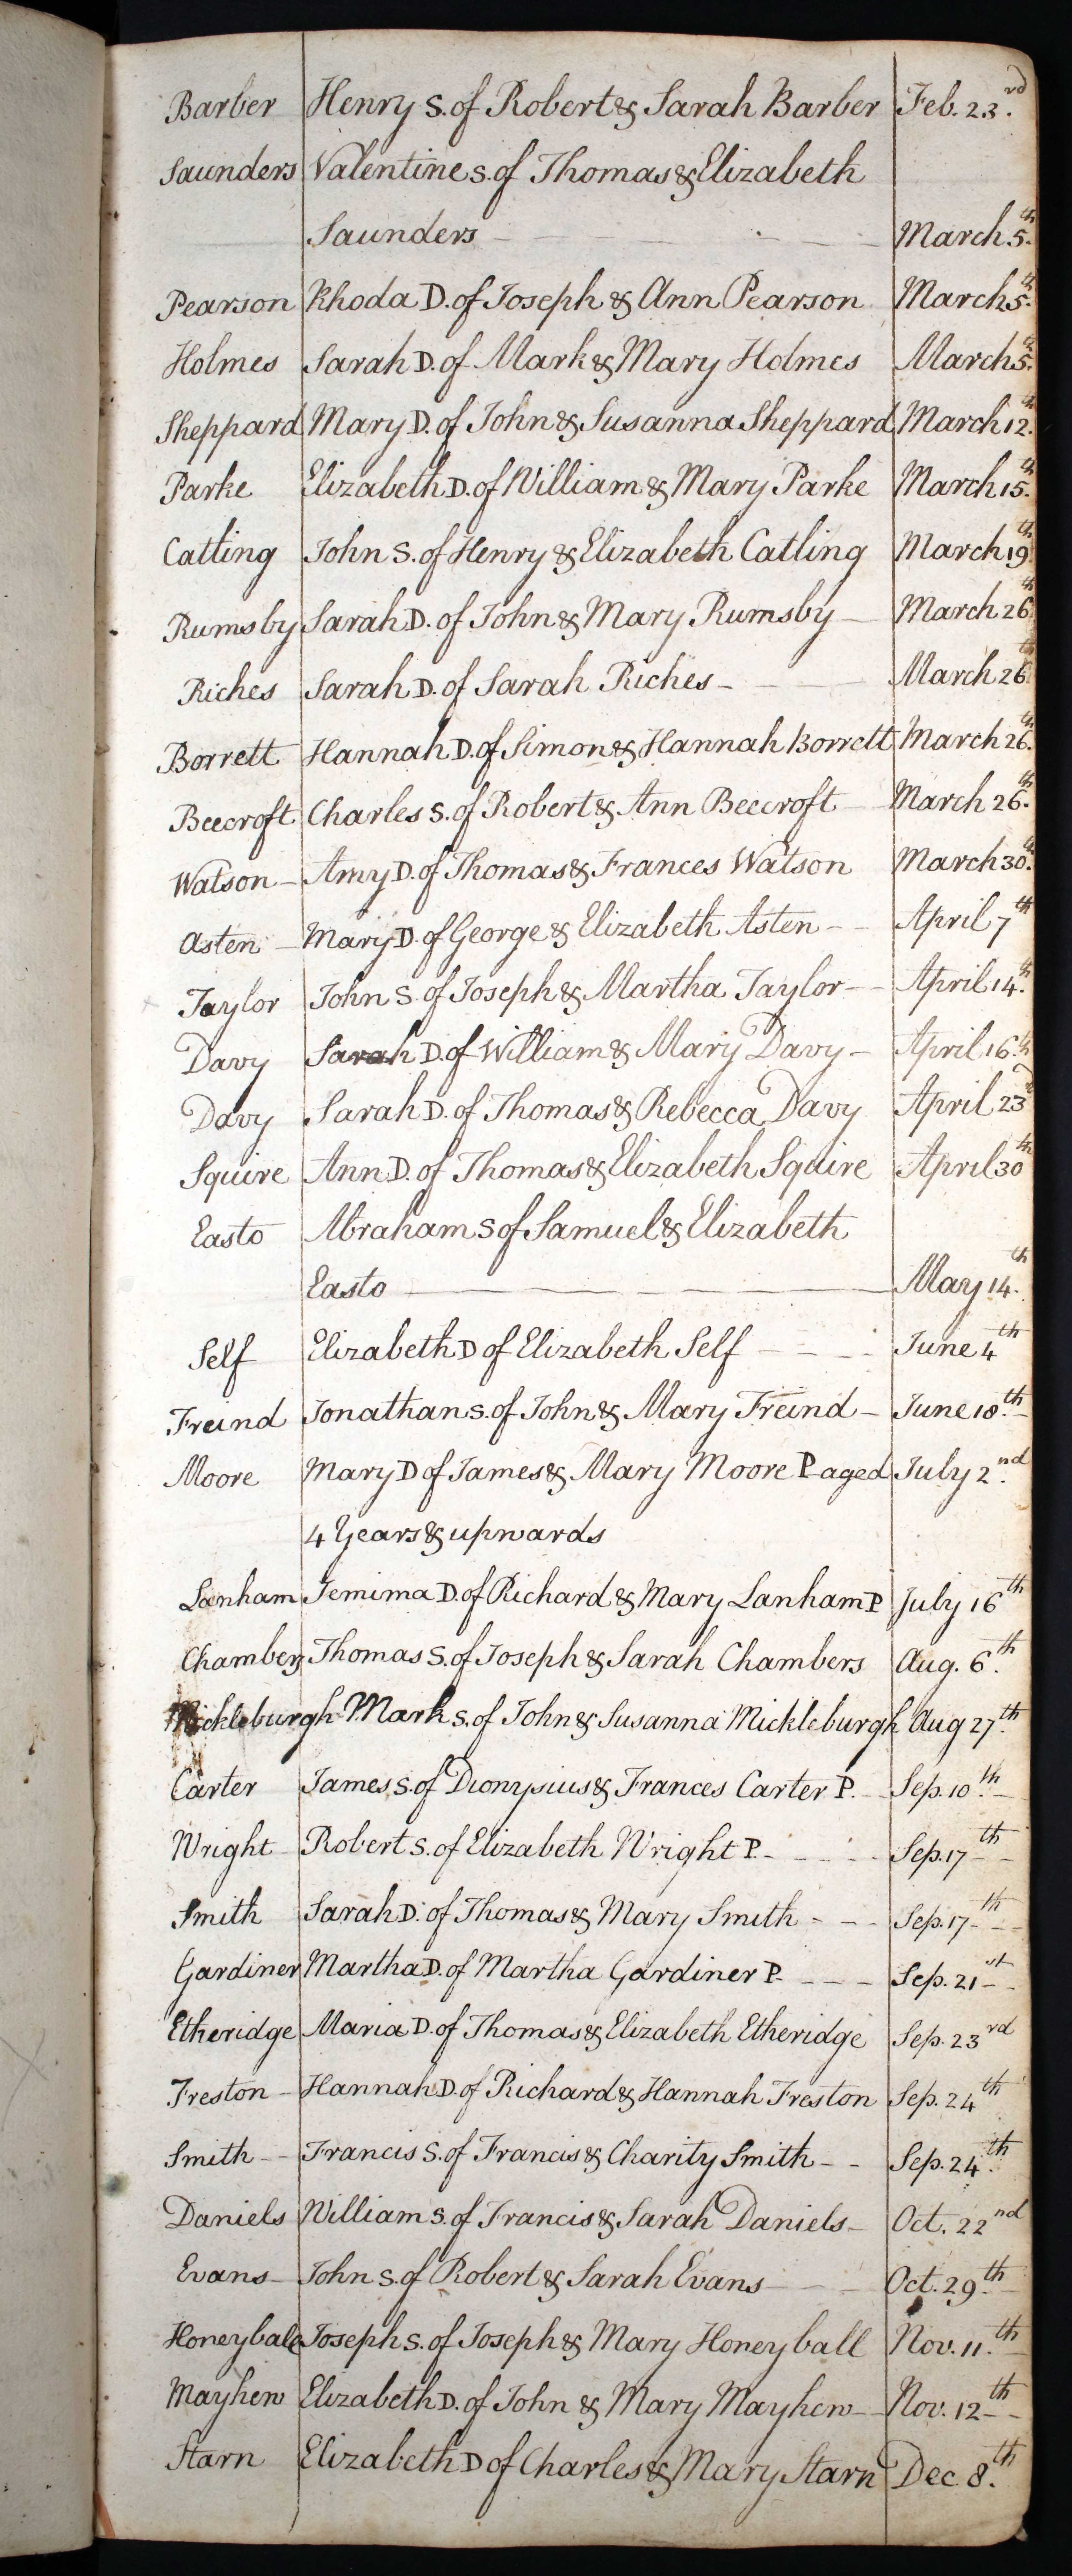 Barber Henry S. of Robert & Sarah Barber Feb. 23.rd
Saunders Valentine S. of Thomas & Elizabeth
Saunders March 5.th
Pearson Rhoda D. of Joseph & Ann Pearson March 5.th
Holmes Sarah D. of Mark & Mary Holmes March 5.th
Sheppard Mary D. of John & Susanna Sheppard March 12.th
Parke Elizabeth D. of William & Mary Parke March 15.th
Catling John S. of Henry & Elizabeth Catling March 19th
Rumsby Sarah D. of John & Mary Rumsby March 26th
Riches Sarah D. of Sarah Riches March 26th
Borrett Hannah D. of Simon & Hannah Borrett March 26.th
Beecroft Charles S. of Robert & Ann Beecroft March 26.th
Watson Amy D. of Thomas & Frances Watson March 30.th
Asten Mary D. of George & Elizabeth Asten April 7th
Taylor John S. of Joseph & Martha Taylor April 14.th
Davy Sarah D. of William & Mary Davy April 16.th
Davy Sarah D. of Thomas & Rebecca Davy April 23
Squire Ann D. of Thomas & Elizabeth Squire April 30th
Easto Abraham S of Samuel & Elizabeth
Easto May 14.th
Self Elizabeth D of Elizabeth Self June 4th
Freind Jonathan S. of John & Mary Freind June 18.th
Moore Mary D of James & Mary Moore P aged July 2.nd
4 Years & upwards
Lanham Jemima D. of Richard & Mary Lanham P July 16th
Chambers Thomas S. of Joseph & Sarah Chambers Aug. 6.th
Mickleburgh Mark S. of John & Susanna Mickleburgh Aug 27.th
Carter James S. of Dionysius & Frances Carter P. Sep. 10.th
Wright Robert S. of Elizabeth Wright P. Sep. 17th
Smith Sarah D. of Thomas & Mary Smith Sep. 17th
Gardiner Martha D. of Martha Gardiner P. Sep. 21st
Etheridge Maria D. of Thomas & Elizabeth Etheridge Sep. 23rd
Freston Hannah D. of Richard & Hannah Freston Sep. 24th
Smith Francis S. of Francis & Charity Smith Sep. 24.th
Daniels William S. of Francis & Sarah Daniels Oct. 22nd
Evans John S. of Robert & Sarah Evans Oct. 29.th
Honeyball Joseph S. of Joseph & Mary Honeyball Nov. 11.th
Mayhew Elizabeth D. of John & Mary Mayhew Nov. 12th
Starn Elizabeth D of Charles & Mary Starn Dec 8.th